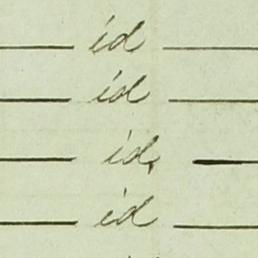 — id —
— id —
— id. —
— id —